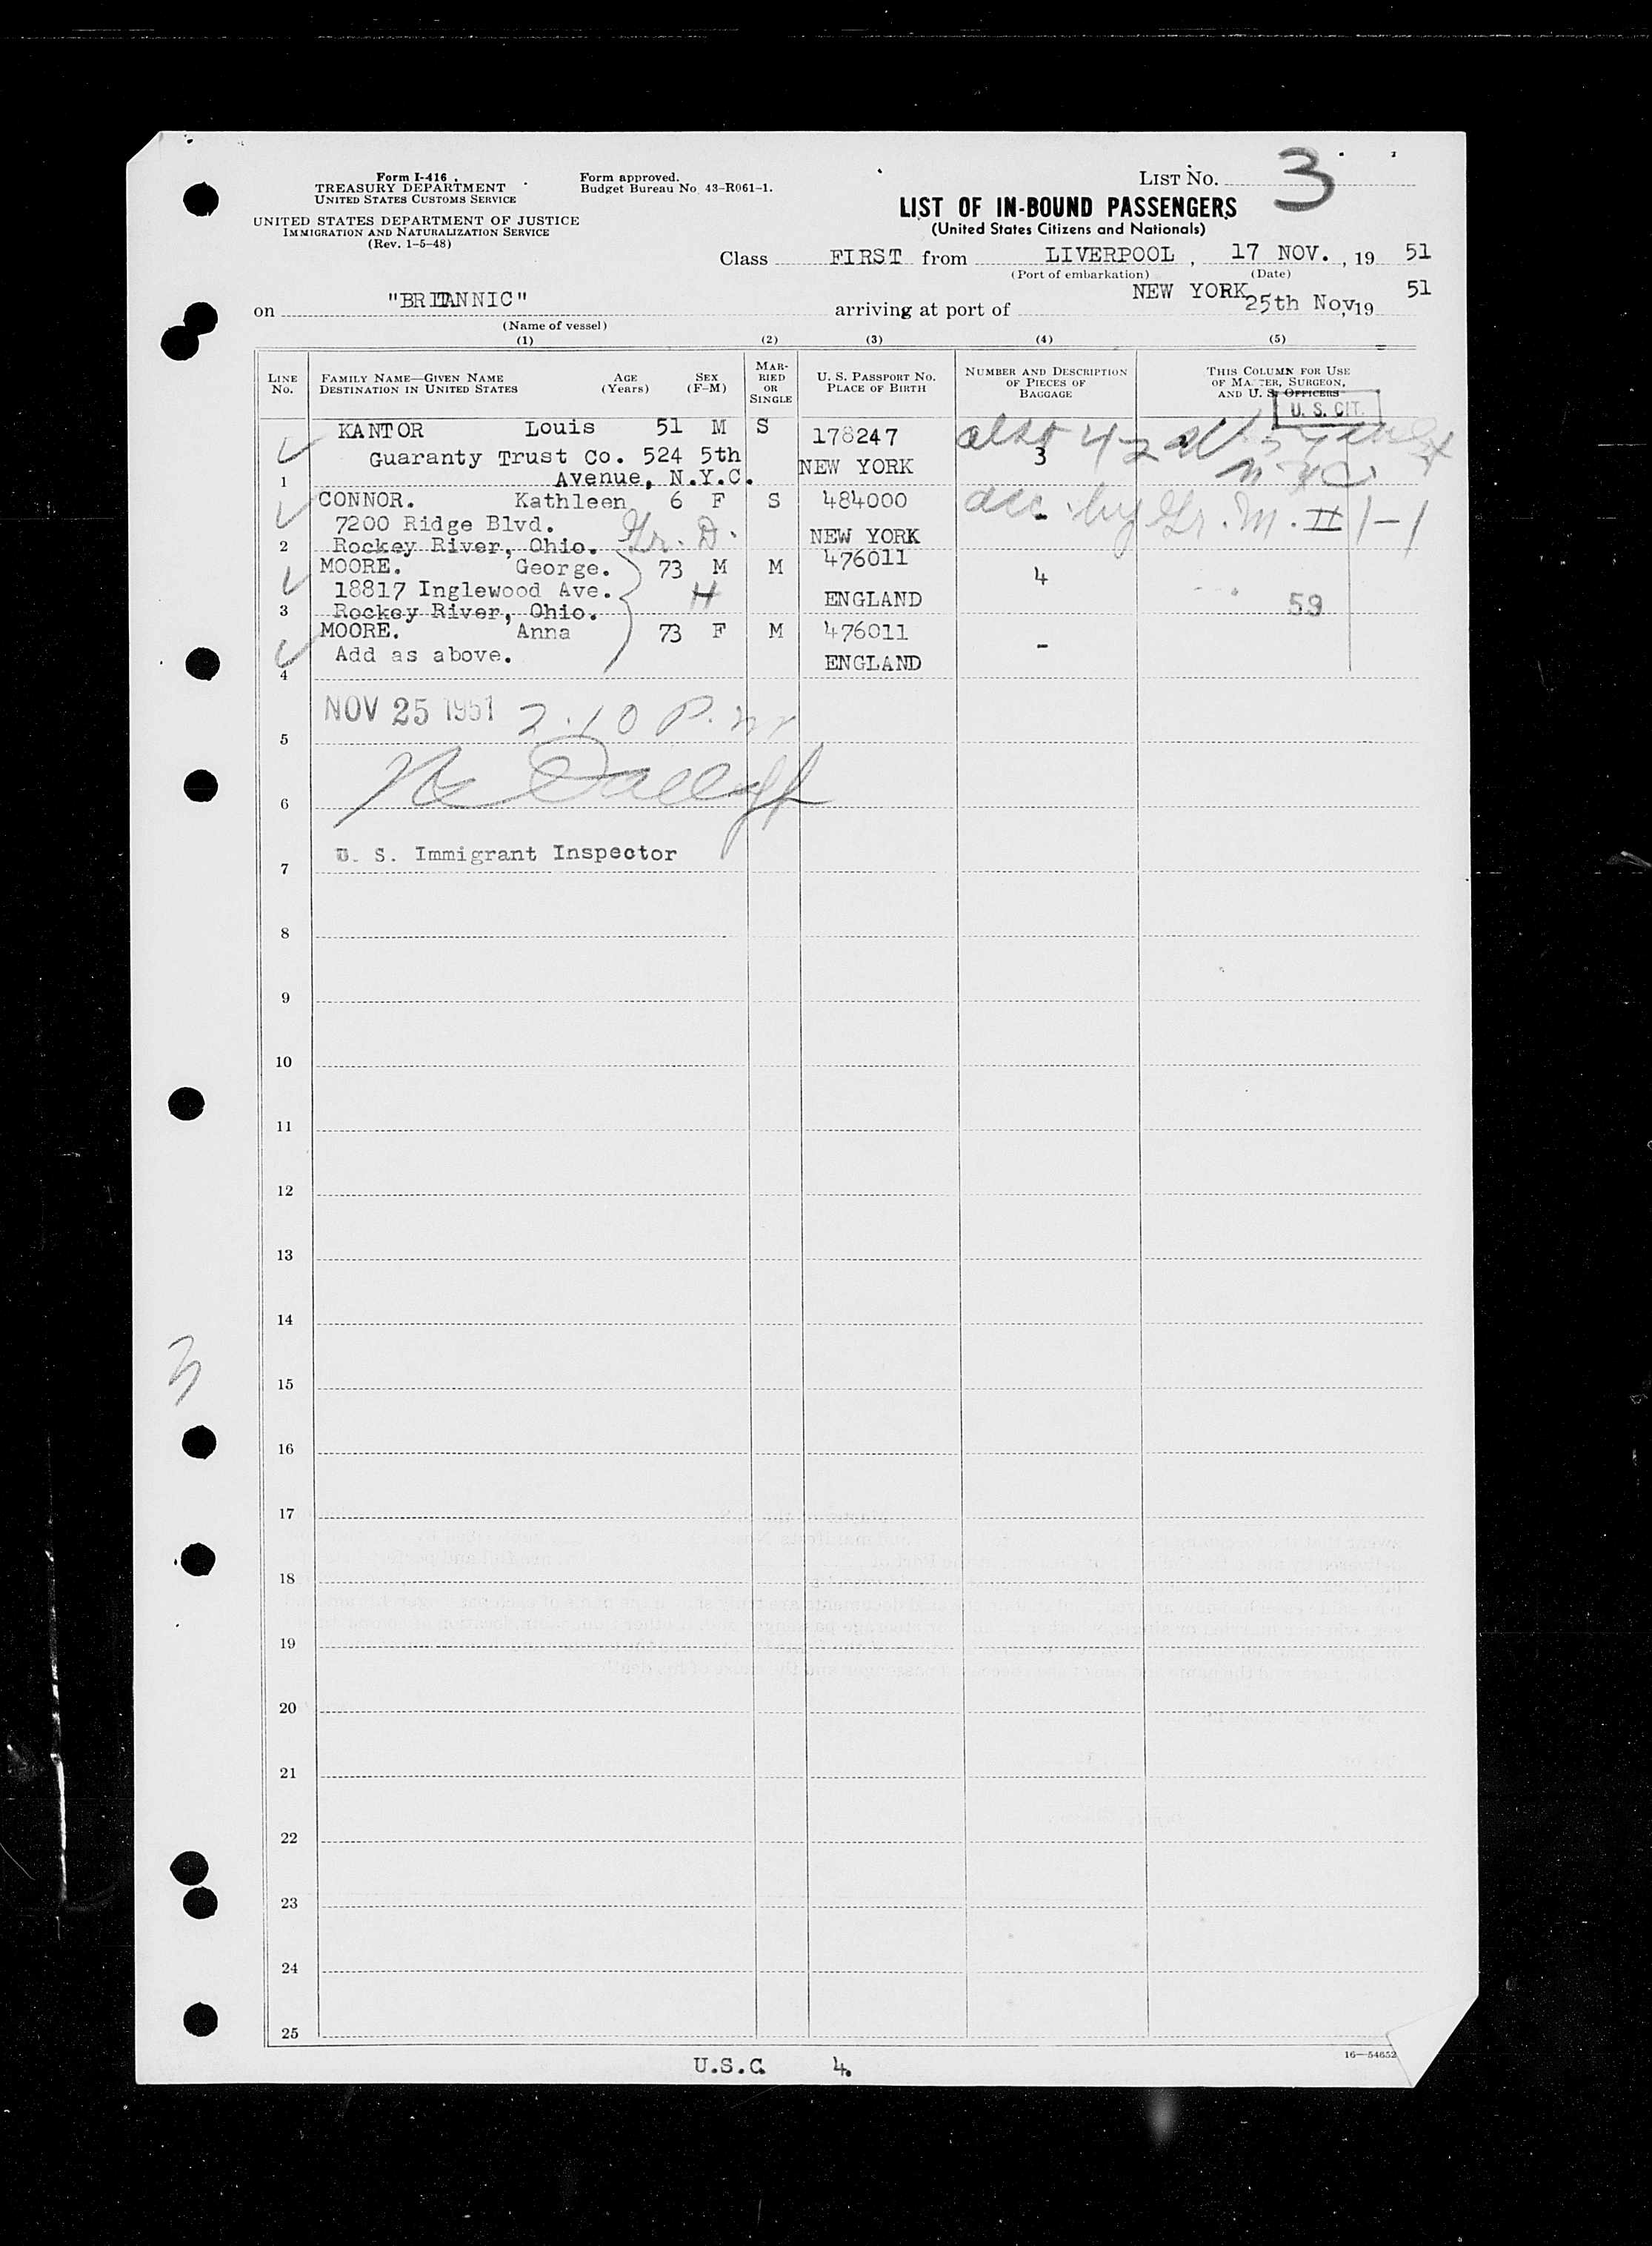 Form I-416
TREASURY DEPARTMENT
UNITED STATES CUSTOMS SERVICE
UNITED STATES DEPARTMENT OF JUSTICE
IMMIGRATION AND NATURALIZATION SERVICE
(Rev. 1-5-48)
Form approved.
Budget Bureau No. 43-R061-1.
LIST No. 3
LIST OF IN-BOUND PASSENGERS
(United States Citizens and Nationals)
Class FIRST from LIVERPOOL, 17 NOV., 19 51
(Port of embarkation) (Date)
on "BRITANNIC" arriving at port of NEW YORK 25th Nov, 19 51
(Name of vessel)
(1) (2) (3) (4) (5)
LINE No.
FAMILY NAME—GIVEN NAME
DESTINATION IN UNITED STATES
AGE (Years)
SEX (F-M)
MARRIED OR SINGLE
U. S. PASSPORT No.
PLACE OF BIRTH
NUMBER AND DESCRIPTION OF PIECES OF BAGGAGE
THIS COLUMN FOR USE OF MASTER, SURGEON, AND U. S. OFFICERS
U. S. CIT.
KANTOR Louis 51 M S 178247 also 42
Guaranty Trust Co. 524 5th NEW YORK 3
1 Avenue, N.Y.C.
CONNOR. Kathleen 6 F S 484000 acc. by Gr. M. II 1-1
7200 Ridge Blvd. Gr. D. -
2 Rockey River, Ohio. NEW YORK
MOORE. George. 73 M M 476011 4
18817 Inglewood Ave. H ENGLAND
3 Rockey River, Ohio. 59
MOORE. Anna 73 F M 476011 -
Add as above. ENGLAND
4
NOV 25 1951 2.10 P.m
5
6
U. S. Immigrant Inspector
7
8
9
10
11
12
13
14
3
15
16
17
18
19
20
21
22
23
24
25
16—54652
U.S.C. 4.